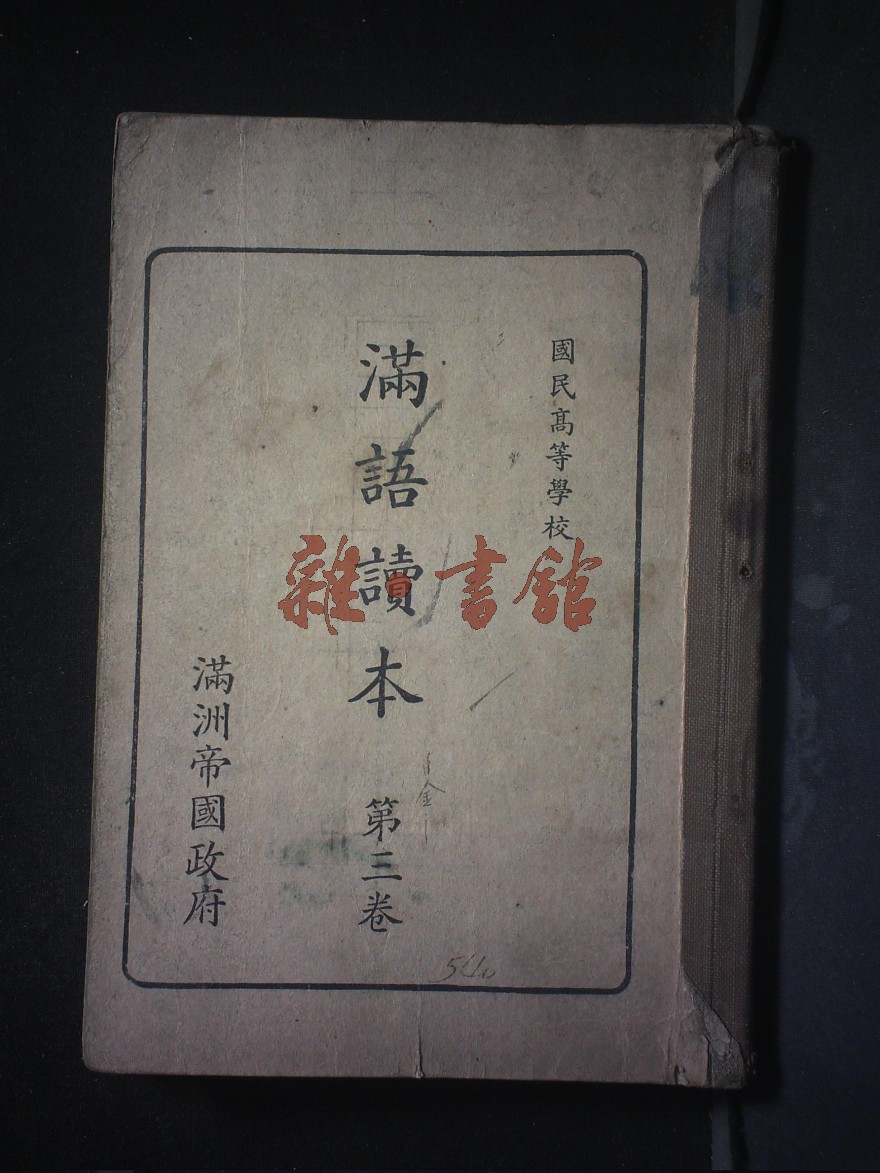 國民高等學校
滿語讀本 第三卷
滿洲帝國政府
雜書館
540